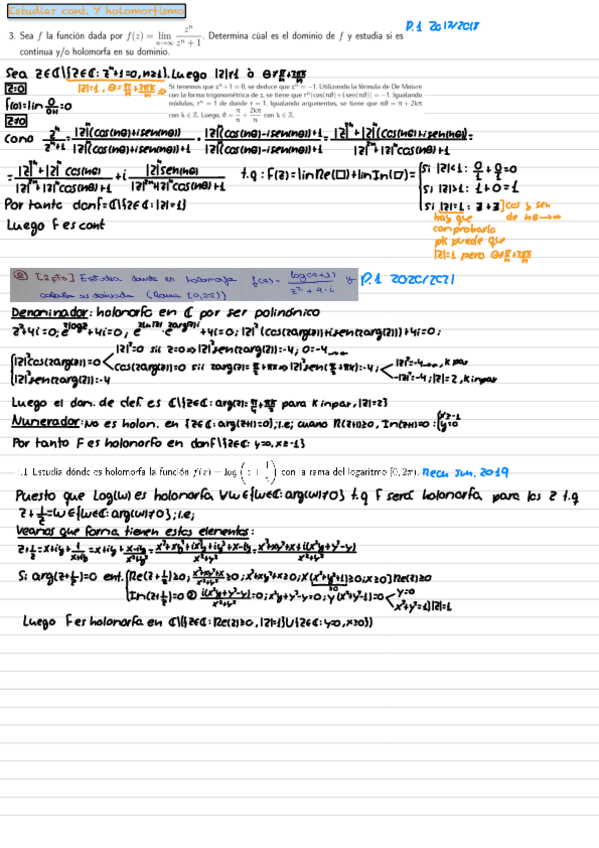 Estudiar cont. Y holomorfismo
P.1 2017/2018
3. Sea f la función dada por f(z) = lím_{n→∞} z^n/(z^n + 1). Determina cúal es el dominio de f y estudia si es
continua y/o holomorfa en su dominio.
Sea z∈ℂ\{z∈ℂ: z^n+1=0, n≥1}. Luego |z|≠1 ò θ≠π/n+2πk/n
z=0
|z|=1, θ=π/n+2πk/n
Si tenemos que z^n + 1 = 0, se deduce que z^n = −1. Utilizando la fórmula de De Moivre
con la forma trigonométrica de z, se tiene que r^n(cos(nθ) + i sen(nθ)) = −1. Igualando
módulos, r^n = 1 de donde r = 1. Igualando argumentos, se tiene que nθ = π + 2kπ
con k ∈ Z. Luego, θ = π/n + 2kπ/n con k ∈ Z.
f(0)=lim 0/(0+1)=0
z≠0
Como z^n/(z^n+1) = |z|^n(cos(nθ)+isen(nθ))/(|z|^n(cos(nθ)+isen(nθ))+1) · (|z|^n(cos(nθ)-isen(nθ))+1)/(|z|^n(cos(nθ)-isen(nθ))+1) =
t.q: F(z)=limRe(□)+limIm(□)=
Si |z|<1: 0/1+0/1=0
Si |z|>1: 1+0=1
Si |z|=1: ∄+∄
cos y sen de nθ→∞
Por tanto domf=ℂ\{z∈ℂ:|z|=1}
hay que
comprobarlo
pk puede que
|z|=1 pero θ≠π/n+2πk/n
Luego F es cont
② [2 pts] Estudia donde es holomorfa f(z)= log(z+1)/(z²+4i) y
calcula su derivada (Rama [0,2π))
P.1 2020/2021
Denominador: holomorfo en ℂ por ser polinómico
z²+4i=0; e^{2logz}+4i=0; e^{2ln|z|}·e^{2arg(z)i}+4i=0; |z|²(cos(2arg(z))+isen(2arg(z)))+4i=0;
|z|²cos(2arg(z))=0
|z|²=0 sii z=0⇒|z|²sen(2arg(z))=-4; 0=-4
|z|²sen(2arg(z))=-4
cos(2arg(z))=0 sii 2arg(z)=π/2+πk⇒|z|²sen(π/2+πk)=-4;
|z|²=-4, k par
-|z|²=-4; |z|=2, k impar
Luego el dom. de def. es ℂ\{z∈ℂ: arg(z)=π/4+πk/2 para k impar, |z|=2}
Numerador: No es holom. en {z∈ℂ: arg(z+1)=0}; i.e; cuando Re(z+1)≥0, Im(z+1)=0; {x≥-1 y=0
Por tanto F es holomorfo en domf\{z∈ℂ: y=0, x≥-1}
.1. Estudia dónde es holomorfa la función f(z) = log(z + 1/z) con la rama del logaritmo [0, 2π). Recu Jun. 2019
Puesto que Log(w) es holomorfa ∀w∈{w∈ℂ: arg(w)≠0} t.q F será holomorfa para los z t.q
z+1/z=w∈{w∈ℂ: arg(w)≠0}; i.e;
Veamos que forma tienen estos elementos:
z+1/z=x+iy+1/(x+iy)=x+iy+(x-iy)/(x²+y²)=(x³+xy²+ix²y+iy³+x-iy)/(x²+y²)=(x³+xy²+x+i(x²y+y³-y))/(x²+y²)
Si arg(z+1/z)=0 ent.
Re(z+1/z)≥0; (x³+xy²+x)/(x²+y²)≥0; x³+xy²+x≥0; x(x²+y²+1)≥0; x≥0] Re(z)≥0
Im(z+1/z)=0 ⇒ i(x²y+y³-y)/(x²+y²)=0; x²y+y³-y=0; y(x²+y²-1)=0
y=0
x²+y²=1] |z|=1
Luego F es holomorfa en ℂ\({z∈ℂ: Re(z)≥0, |z|=1}∪{z∈ℂ: y=0, x≥0})